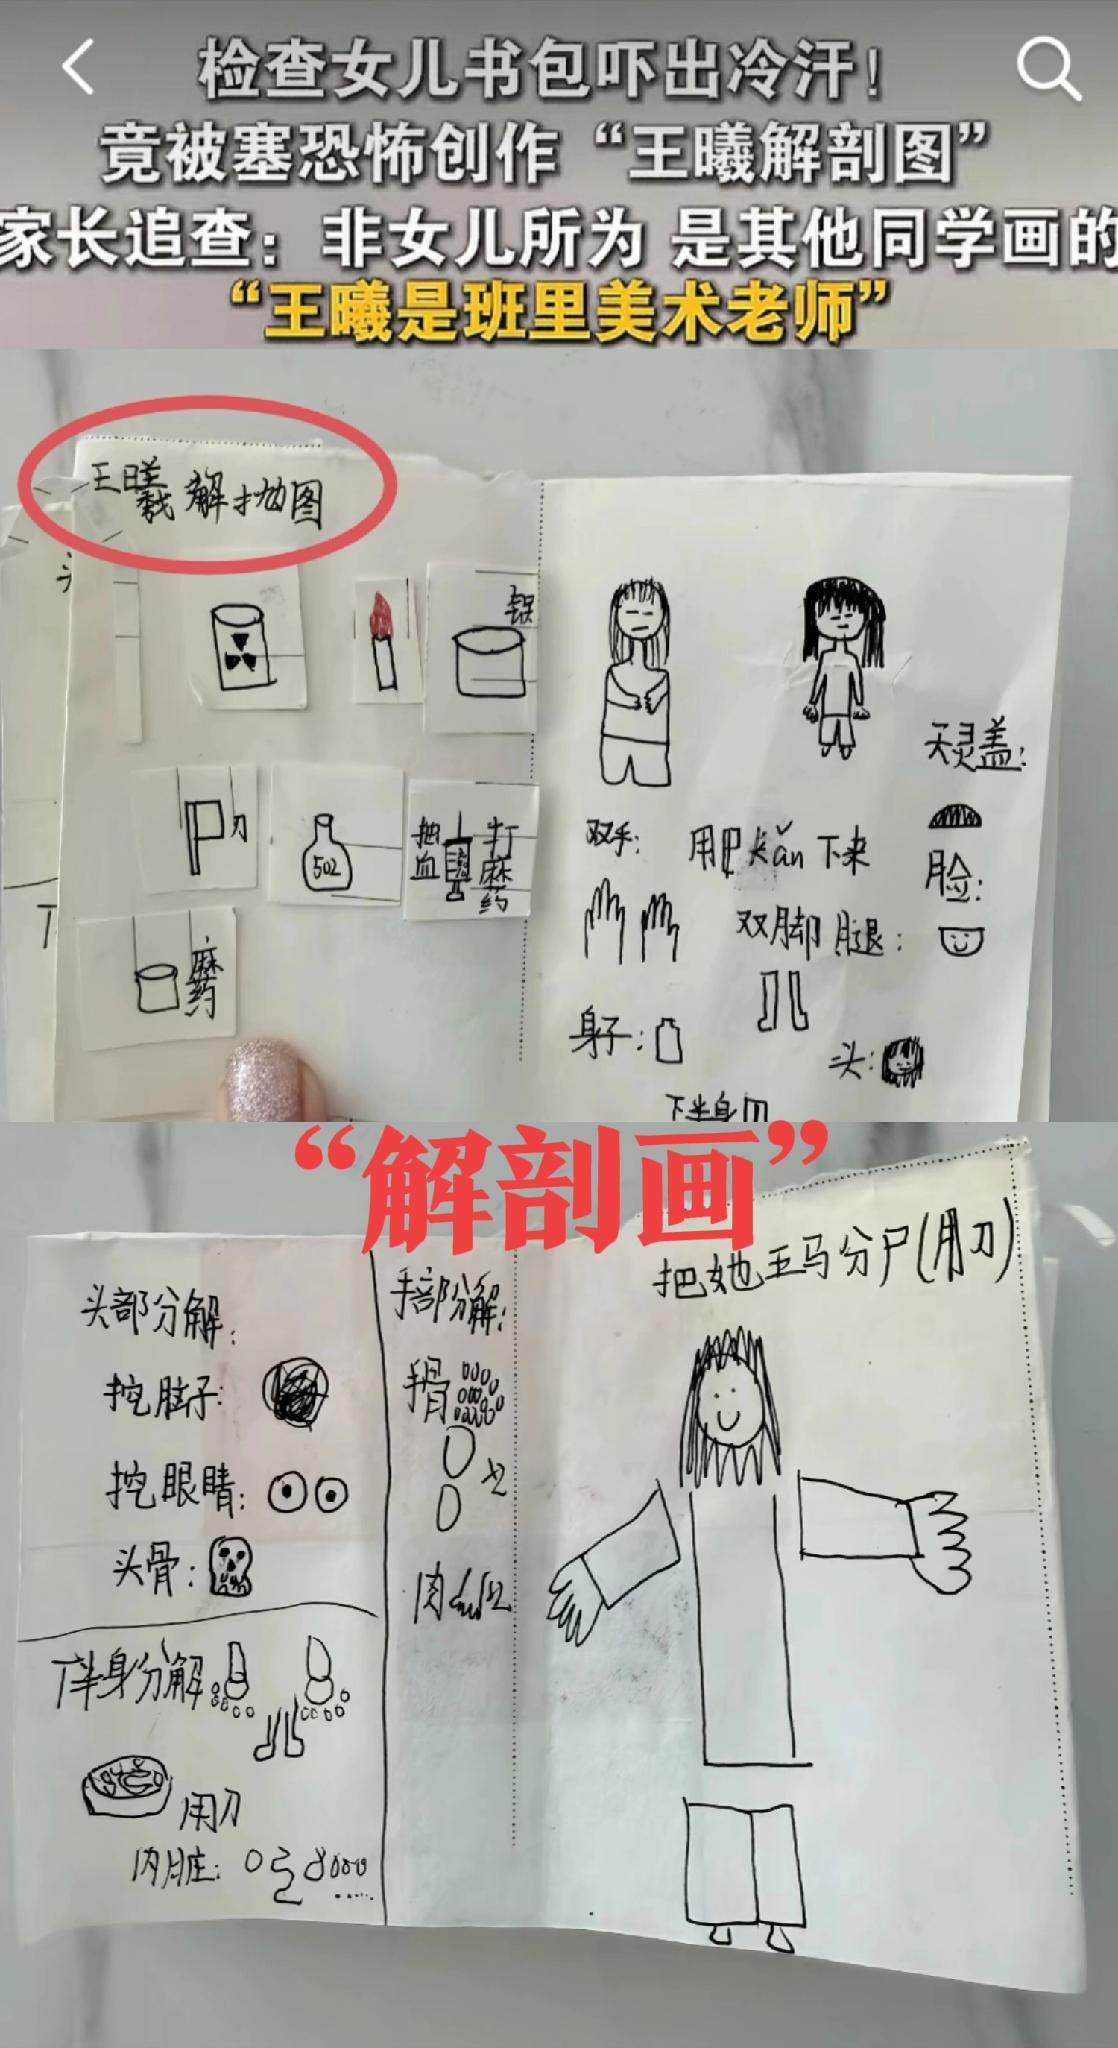 检查女儿书包吓出冷汗！
竟被塞恐怖创作“王曦解剖图”
家长追查：非女儿所为 是其他同学画的
“王曦是班里美术老师”
王曦 解抛图
锅
刀
502
抽血
打麻药
麻药
天灵盖：
双手：
用 kǎn 下来
脸：
双脚 腿：
身子：
头：
下半身
“解剖画”
把她五马分尸(用刀)
头部分解：
手部分解：
挖 子：
手骨
挖眼睛：
头骨：
肉
下半身分解
用刀
内脏：